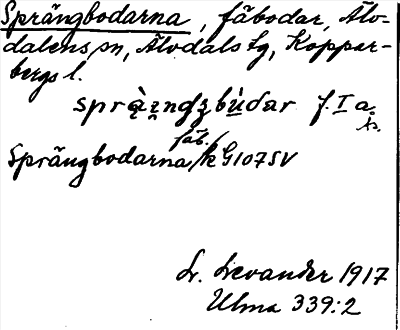 Sprängbodarna, fäbodar, Älv-
dalens sn, Älvdals tg, Koppar-
bergs l.
språ̀ngbùdar f. I a.
fäb.
Sprängbodarna/k G107SV
L. Levander 1917
Ulma 339:2